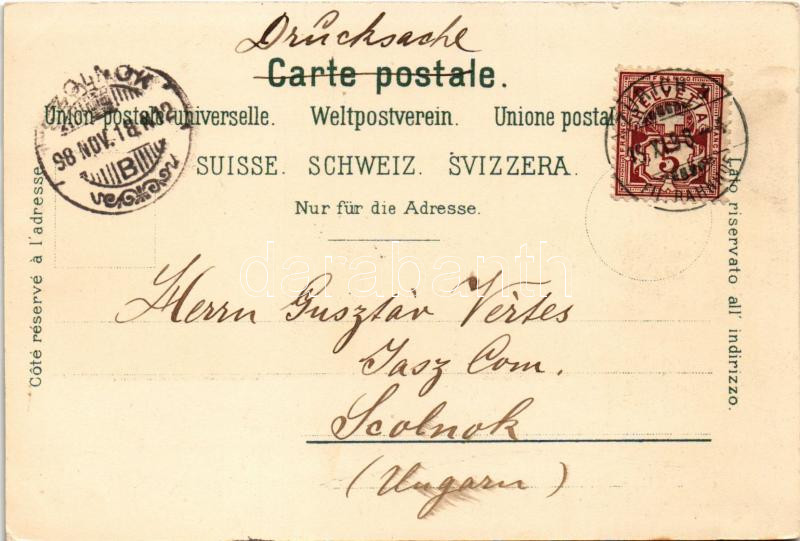 Drucksache
Carte postale.
Union postale universelle. Weltpostverein. Unione postal
SUISSE. SCHWEIZ. SVIZZERA.
Nur für die Adresse.
Côté réservé à l'adresse.
Lato riservato all' indirizzo.
SZOLNOK
98 NOV. 18.
B
FRANCO
5
15 XI 98
darabanth
Herrn Gusztáv Vértes
Jasz Com.
Scolnok
(Ungarn)